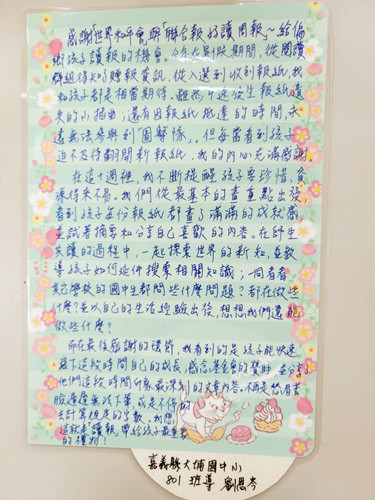 感謝世界和平會與「聯合報好讀周報」~給偏
鄉孩子讀報的機會。今年在暑假期間,從閱讀
群組得知了贈報資訊,從入選到收到報紙,我
和孩子都是相當期待。雖然中途發生報紙遺
失的小插曲;還有因報紙抵達的時間,永
遠無法參與到「團幫隊」。但每當看到孩子
迫不及待翻閱新報紙,我的內心充滿感謝。
在這十週裡,我不斷提醒孩子要珍惜,資
源得來不易。我們從最基本的畫重點出發
看到孩子每份報紙都畫了滿滿的成就感
並試著摘要和分享自己喜歡的內容。在師生
共讀的過程中,一起探索世界的新知,並教
導孩子如何延伸搜索相關知識;一同看看
其它學校的國中生都問些什麼問題?都在做些
什麼?並以自己的生活經驗出發,想想我們還能
做些什麼?
而在最後感謝的環節,我看到的是孩子能快速
寫下這段時間自己的成長,感念基金會的贊助,並分享
他們這段時間印象最深刻的文章內容。不再是愁眉苦
臉遲遲無以下筆,或是不停的
去計算規定的字數,我想
這就是讀報,帶給孩子最重要
的禮物!
嘉義縣大埔國中小
801 班導 劉恩